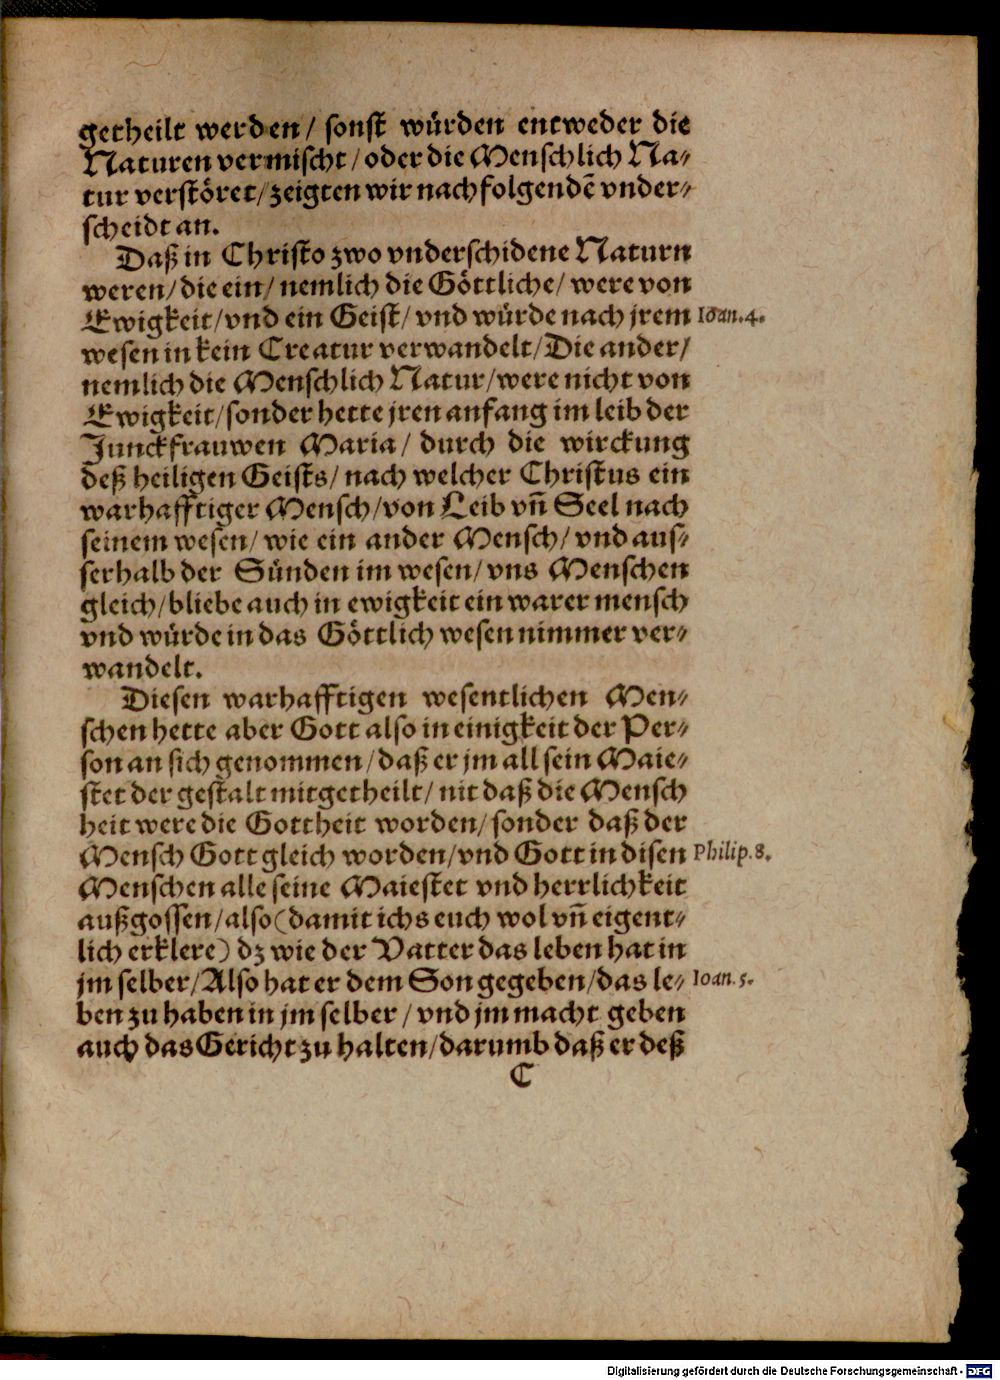 getheilt werden/ sonst würden entweder die
Naturen vermischt/ oder die Menschlich Na⸗
tur verstöret/ zeigten wir nachfolgendẽ vnder⸗
scheidt an.
Daß in Christo zwo vnderschidene Naturn
weren/ die ein/ nemlich die Göttliche/ were von
Ewigkeit/ vnd ein Geist/ vnd würde nach jrem Ioan.4.
wesen in kein Creatur verwandelt/ Die ander/
nemlich die Menschlich Natur/ were nicht von
Ewigkeit/ sonder hette jren anfang im leib der
Junckfrauwen Maria/ durch die wirckung
deß heiligen Geists/ nach welcher Christus ein
warhafftiger Mensch/ von Leib vñ Seel nach
seinem wesen/ wie ein ander Mensch/ vnd aus⸗
serhalb der Sünden im wesen/ vns Menschen
gleich/ bliebe auch in ewigkeit ein warer mensch
vnd würde in das Göttlich wesen nimmer ver⸗
wandelt.
Diesen warhafftigen wesentlichen Men⸗
schen hette aber Gott also in einigkeit der Per⸗
son an sich genommen/ daß er jm all sein Maie⸗
stet der gestalt mitgetheilt/ nit daß die Mensch
heit were die Gottheit worden/ sonder daß der
Mensch Gott gleich worden/ vnd Gott in disen Philip.8.
Menschen alle seine Maiestet vnd herrlichkeit
außgossen/ also (damit ichs euch wol vñ eigent⸗
lich erklere) dz wie der Vatter das leben hat in
jm selber/ Also hat er dem Son gegeben/ das le⸗ Ioan.5.
ben zu haben in jm selber/ vnd jm macht geben
auch das Gericht zu halten/ darumb daß er deß
C
Digitalisierung gefördert durch die Deutsche Forschungsgemeinschaft - DFG